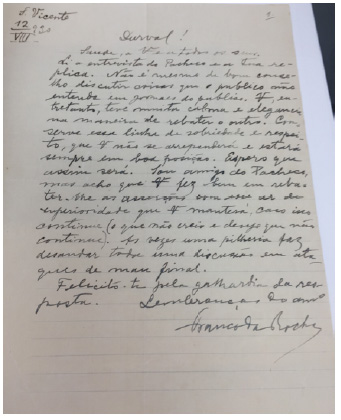 S. Vicente
12
VII
Durval!
Saude, a V e a todos os seus.
Li a entrevista do Pacheco e a tua re-
plica. Não é mesmo de bom conse-
lho discutir coisas que o publico não
entende em jornaes do publico. V, en-
tretanto, teve muita e elegan-
na maneira de rebater o outro. Con-
serve essa linha de sobriedade e respei-
to, que V não se arrependerá e estará
sempre em boa posição. Espero que
assim será. Sou amigo do Pacheco,
mas acho que V fez bem em reba-
ter-lhe as asserções com esse ar de
superioridade que V manterá, caso isso
continue (o que não creio e desejo que não
continue). Ás vezes uma pilheria faz
desandar toda uma discussão em ata-
ques de mau final.
Felicito-te pela galhardia da res-
posta. Lembranças do amº
Franco da Rocha